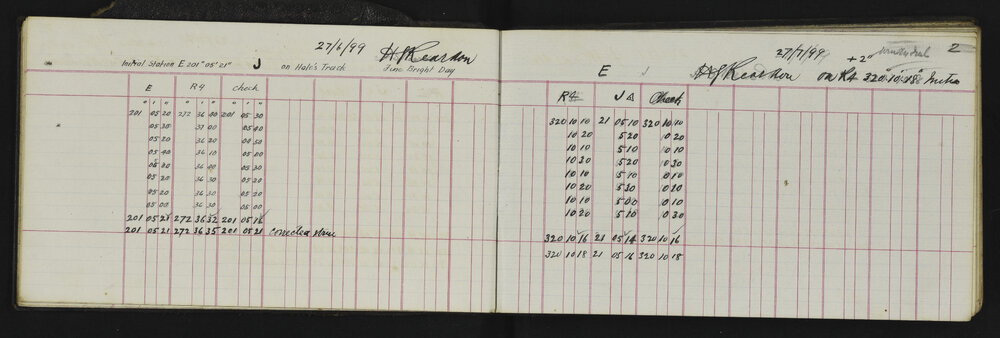 27/6/99 H J Reardon
Initial Station E 201° 05' 21" J on Hale's Track Fine Bright Day
E R9 check
° ' " ° ' " ° ' "
201 05 20 272 36 00 201 05 30
05 30 37 00 05 40
05 20 36 20 05 50
05 40 36 10 05 00
05 20 36 00 05 30
05 20 36 30 05 20
05 20 36 30 05 20
05 00 36 30 05 00
201 05 21 272 36 32 201 05 16
201 05 21 272 36 35 201 05 21 corrected
27/7/99 +2" 2
E J H J Reardon on R4 320° 10' 18" Initial
R4 J △ Check
320 10 10 21 05 10 320 10 10
10 20 5 20 10 20
10 10 5 10 10 10
10 30 5 20 10 30
10 10 5 10 10 10
10 20 5 30 10 10
10 10 5 00 10 10
10 20 5 10 10 30
320 10 16 21 05 14 320 10 16
320 10 18 21 05 16 320 10 18